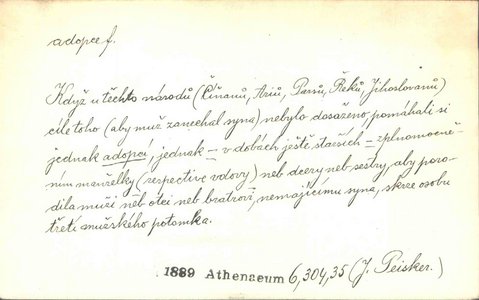 adopce f.
Když u těchto národů (Číňanů, Ariů, Parsů, Řeků, Jihoslovanů)
cíle toho (aby muž zanechal syna) nebylo dosaženo, pomáhali si
jednak adopcí, jednak — v dobách ještě starších — zplnomocně-
ním manželky (respective vdovy) neb dcery neb sestry, aby poro-
dila muži neb otci neb bratrovi, nemajícímu syna, skrze osobu
třetí mužského potomka.
1889 Athenaeum 6,304,35 (J. Peisker.)